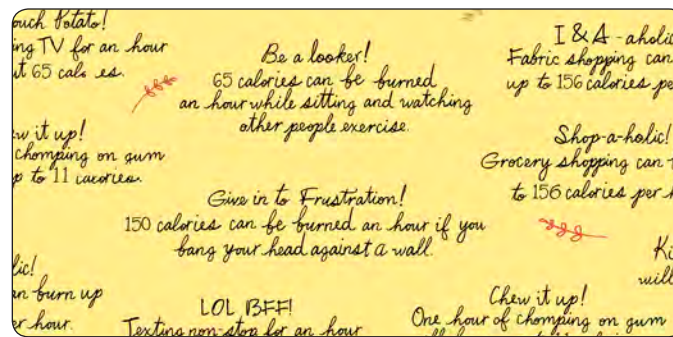 ouch Potato!
ing TV for an hour
ut 65 cal es.
ew it up!
chomping on gum
p to 11 calories.
lic!
an burn up
er hour.
Be a looker!
65 calories can be burned
an hour while sitting and watching
other people exercise.
Give in to Frustration!
150 calories can be burned an hour if you
bang your head against a wall.
LOL BFF!
Texting non-stop for an hour
I & A - aholic
Fabric shopping can
up to 156 calories pe
Shop-a-holic!
Grocery shopping can
to 156 calories per
Ki
will
Chew it up!
One hour of chomping on gum